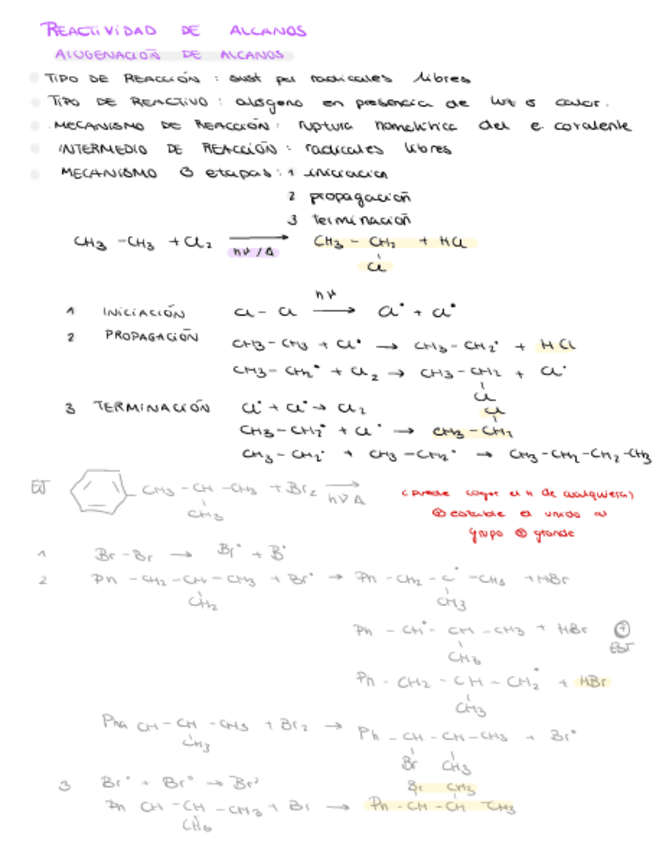 REACTIVIDAD DE ALCANOS
ALOGENACIÓN DE ALCANOS
TIPO DE REACCIÓN : sust por radicales libres
TIPO DE REACTIVO : alogeno en presencia de luz o calor.
MECANISMO DE REACCIÓN : ruptura homolitica del e. covalente
INTERMEDIO DE REACCIÓN : radicales libres
MECANISMO 3 etapas : 1 iniciacion
2 propagación
3 terminación
CH3 - CH3 + Cl2 → CH3 - CH2 + HCl
hν / Δ
Cl
hν
1 INICIACIÓN Cl - Cl → Cl• + Cl•
2 PROPAGACIÓN
CH3 - CH3 + Cl• → CH3 - CH2• + HCl
CH3 - CH2• + Cl2 → CH3 - CH2 + Cl•
Cl
3 TERMINACIÓN Cl• + Cl• → Cl2
Cl
CH3 - CH2• + Cl• → CH3 - CH2
CH3 - CH2• + CH3 - CH2• → CH3 - CH2 - CH2 - CH3
EJ CH3 - CH - CH3 + Br2 →
hν Δ
CH3
(puede coger el H de cualquiera)
⊕ estable el unido al
grupo ⊕ grande
1 Br - Br → Br• + B•
2 Ph - CH2 - CH - CH3 + Br• → Ph - CH2 - C• - CH3 + HBr
CH2 CH3
Ph - CH• - CH - CH3 + HBr ⊕
EST
CH3
Ph - CH2 - CH - CH2• + HBr
CH3
CH - CH - CH3 + Br2 → Ph - CH - CH - CH3 + Br•
CH3
Br CH3
3 Br• + Br• → Br2
Br CH3
Ph CH - CH - CH3 + Br → Ph - CH - CH - CH3
CH3